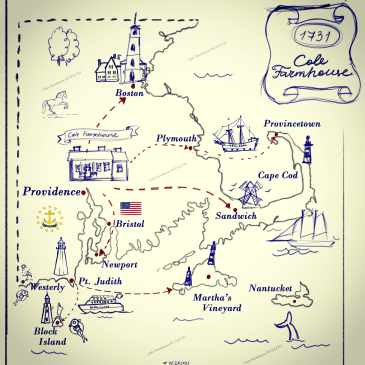 1731
Cole
Farmhouse
Boston
Cole Farmhouse
Plymouth
Provincetown
Cape Cod
Providence
Sandwich
Bristol
Newport
Westerly
Pt. Judith
Martha's
Vineyard
Nantucket
Block
Island